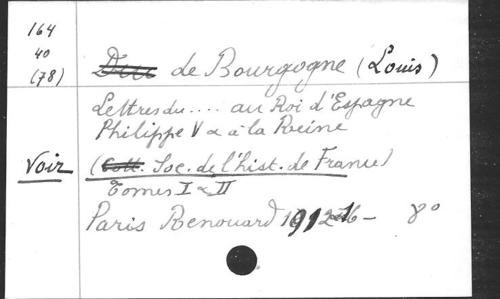 164
40
(78)
Duc de Bourgogne (Louis)
Lettres du .... au Roi d'Espagne
Philippe V & à la Reine
Voir (Coll. Soc. de l'hist. de France)
Tomes I & II
Paris Renouard 1912-16 - 8º